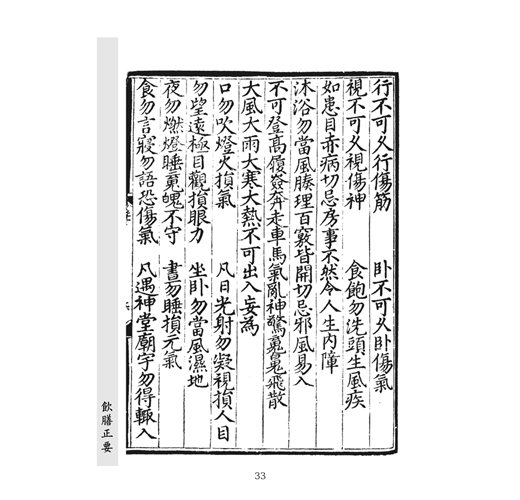 行不可久行傷筋　臥不可久臥傷氣
視不可久視傷神　食飽勿洗頭生風疾
如患目赤病切忌房事不然令人生內障
沐浴勿當風腠理百竅皆開切忌邪風易入
不可登高履嶮奔走車馬氣亂神驚䰟魄飛散
大風大雨大寒大熱不可出入妄為
口勿吹燈火損氣　凡日光射勿凝視損人目
勿望遠極目觀損眼力　坐臥勿當風濕地
夜勿燃燈睡䰟魄不守　晝勿睡損元氣
食勿言寢勿語恐傷氣　凡遇神堂廟宇勿得輒入
飲膳正要
33